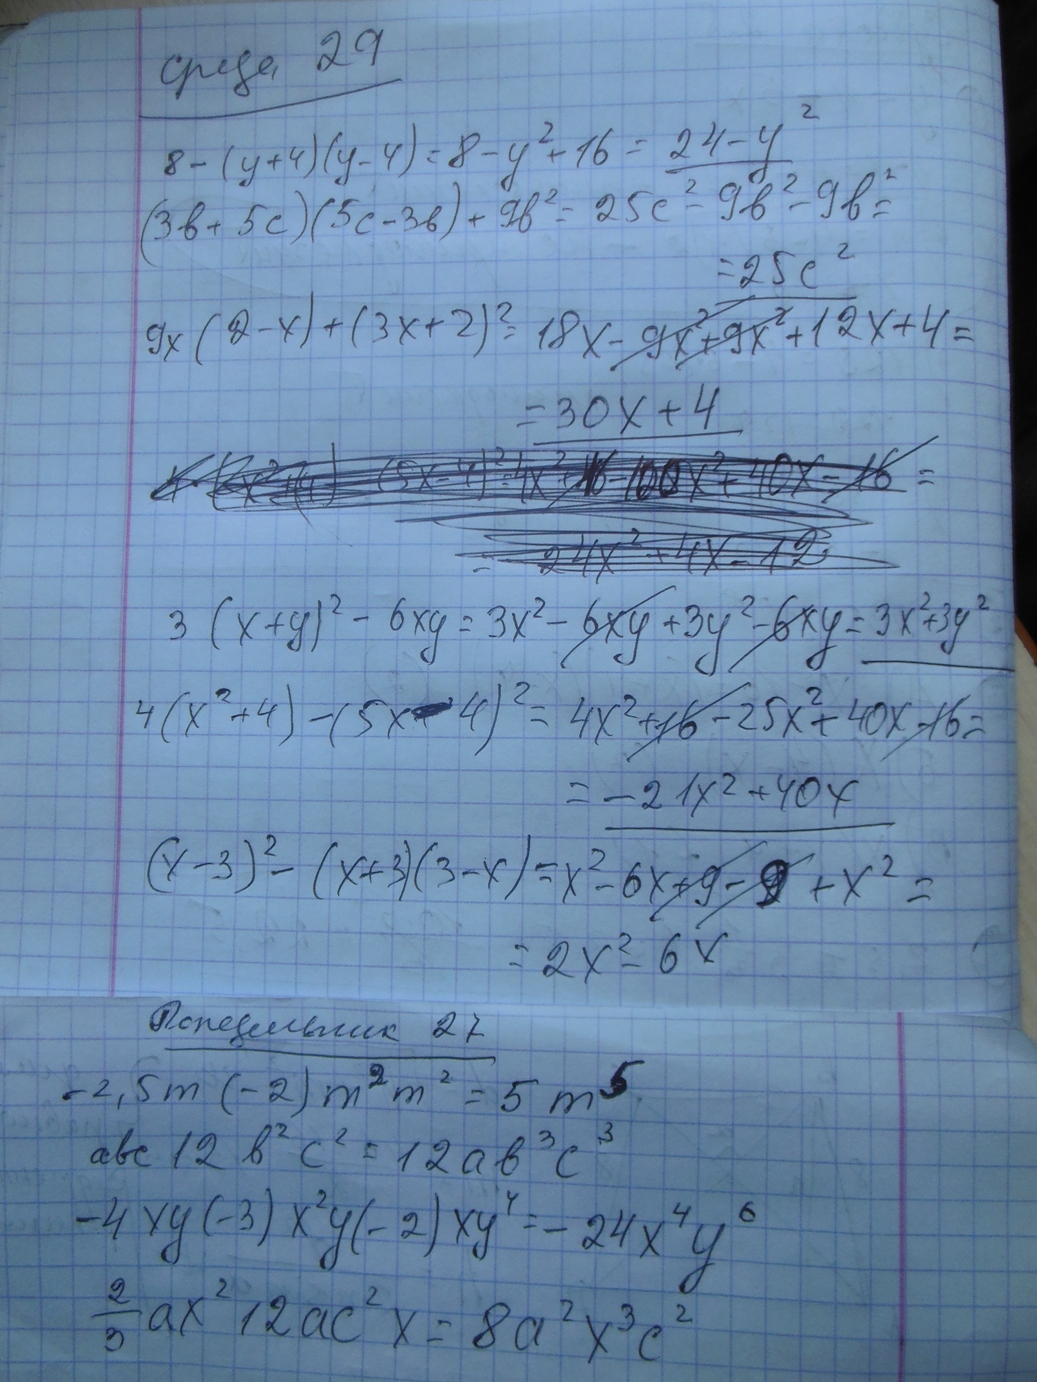 среда 29
8-(y+4)(y-4)=8-y²+16=24-y²
(3в+5с)(5с-3в)+9в²=25с²-9в²-9в²=
=25с²
9x(2-x)+(3x+2)²=18x-9x²+9x²+12x+4=
=30x+4
(5x-4)²=4x²+16-100x²+40x-16=
= 24x²+4x-12
3(x+y)²-6xy=3x²-6xy+3y²-6xy=3x²+3y²
4(x²+4)-(5x-4)²=4x²+16-25x²+40x-16=
=-21x²+40x
(x-3)²-(x+3)(3-x)=x²-6x+9-9+x²=
=2x²-6x
Понедельник 27
-2,5m(-2)m²m²=5m⁵
авс12в²с²=12ав³с³
-4xy(-3)x²y(-2)xy⁴=-24x⁴y⁶
2/3ax²12ac²x=8a²x³c²